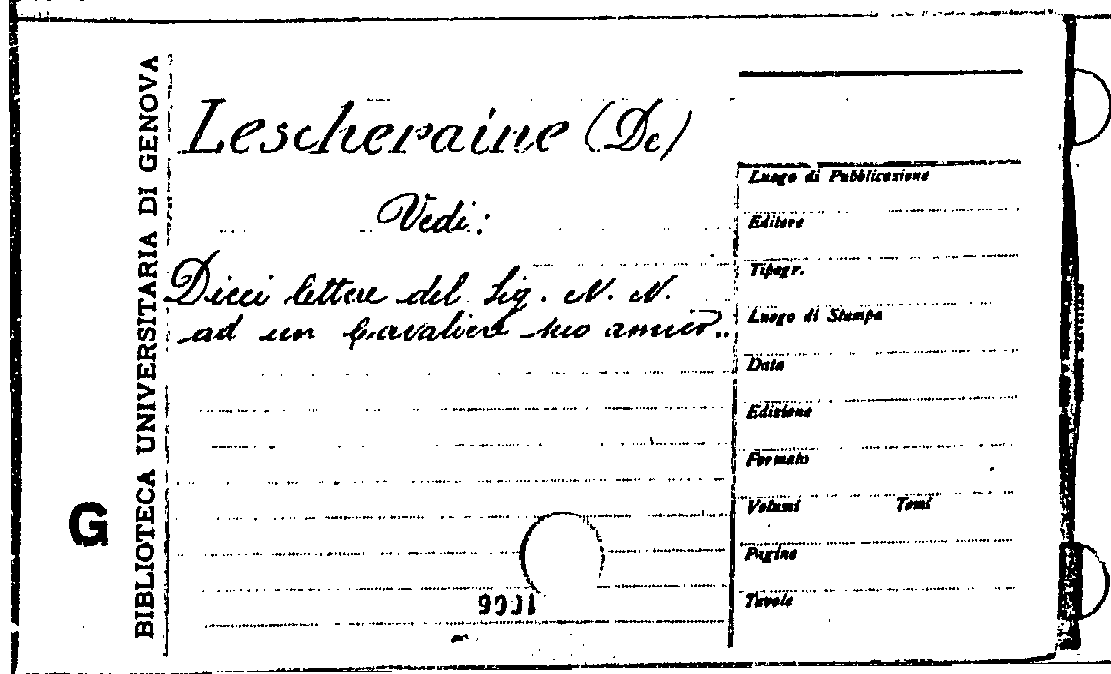 BIBLIOTECA UNIVERSITARIA DI GENOVA
G
Lescheraine (De)
Vedi:
Dieci lettere del Sig. N. N.
ad un Cavaliere suo amico..
Luogo di Pubblicazione
Editore
Tipogr.
Luogo di Stampa
Data
Edizione
Formato
Volumi Tomi
Pagine
Tavole